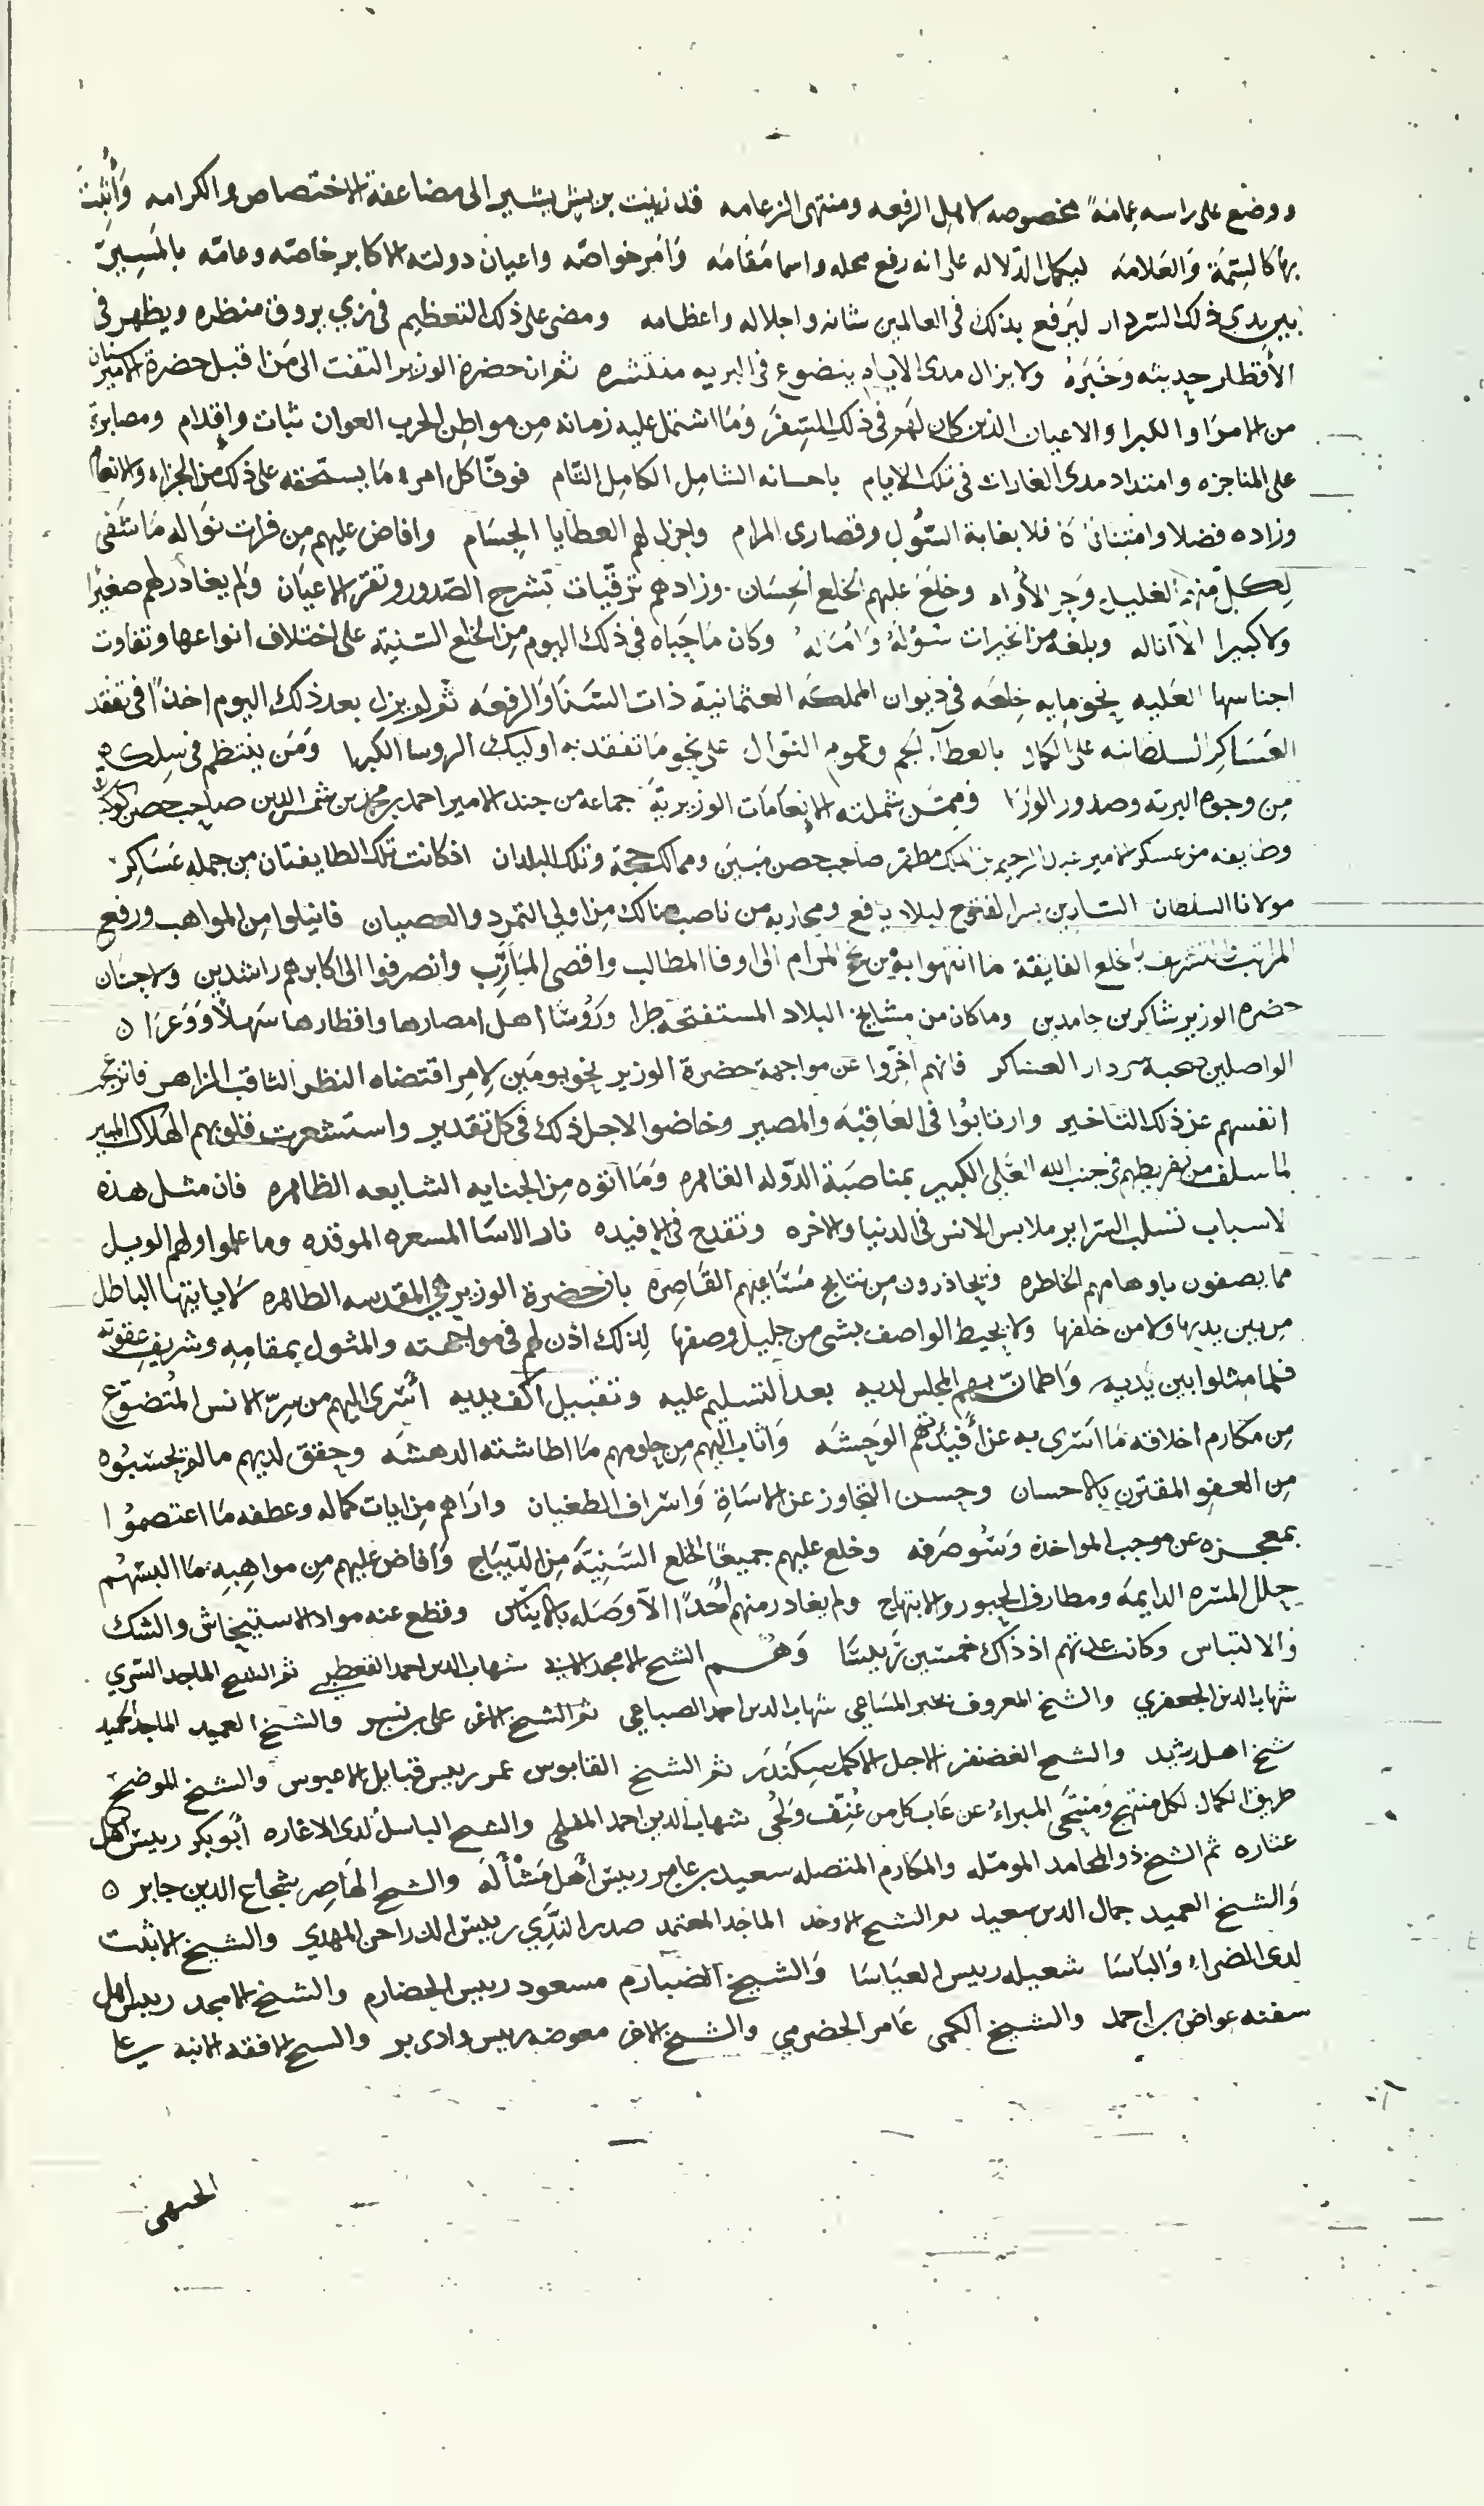 ووضع على راسه عمامةً مخصوصه لاهل الرفعه ومنتهى الزعامه قد زينت بريش يشير الى مضاعفة الاختصاص والكرامه وأثبت
بها كالسمة والعلامه ليكمل الدلاله على انه رفع محله واسما مقامه وامر خواصه واعيان دولته الاكابر خاصته وعامته بالمسير
بين يدي ذلك السردار ليرفع بذلك في العالمين شانه واجلاله واعظامه ومضى على ذلك التعظيم في زي يروق منظره ويظهر في
الأقطار حديثه وخبره ولا يزال مدى الايام يتضوع في البريه منتشره ثم ان حضرة الوزير التفت الى من اقبل حضرة الامير سنان
من الامرا والكبرا والاعيان الذين كان لهم في ذلك السفر وما اشتمل عليه زمانه من مواطن الحرب العوان ثبات واقدام ومصابرة
على المناجزه وامتداد مدى الغارات في تلك الايام باحسانه الشامل الكامل التام فوفا كل امرء ما يستحقه على ذلك من الجزاء والانعام
وزاده فضلا وامتنانا بغاية السول وقصارى المرام واجزل لهم العطايا الجسام وافاض عليهم من فرات نواله ما شفى
لكل منهم الغليل وجر الأوام وخلع عليهم الخلع الحسان وزادهم ترقيات تشرح الصدور وتقر الاعيان ولم يغادر لهم صغيرا
ولا كبيرا الا اناله وبلغه من الخيرات سؤله وآماله وكان ما حباه في ذلك اليوم من الخلع السنية على اختلاف انواعها وتفاوت
اجناسها العليه نحو مايه خلعه في ديوان المملكه العثمانية ذات السنا والرفعه ثم لم يزل بعد ذلك اليوم اخذا في تفقد
العساكر السلطانيه على الكمال بالعطآ الجم وعموم النوال على نحو ما تفقد به اوليك الروسا الكبرا ومن ينتظم في سلكهم
من وجوه البريه وصدور الوزرا وممن شملته الانعامات الوزيرية جماعه من جند الامير احمد بن محمد بن شمس الدين صاحب حصن كوكبان
وطايفه من عسكر الامير عبد الرحيم بن الملك مطهر صاحب حصن مبين وممالك حجة وتلك البلدان اذ كانت تلك الطايفتان من جمله عساكر
مولانا السلطان السارين بسر الفتوح لبلاد يافع ومحاربه من ناصب هنالك من اولي التمرد والعصيان فانيلوا من المواهب ورفع
المراتب والتشريف بالخلع الفايقة ما انتهوا به من المرام الى اوفا المطالب واقصى المآرب وانصرفوا الى اكابرهم راشدين ولاحسان
حضره الوزير شاكرين حامدين وما كان من مشايخ البلاد المستفتحه طرا ورؤسا اهل امصارها واقطارها سهلا ووعرا ه
الواصلين صحبة سردار العساكر فانهم اخروا عن مواجهة حضرة الوزير نحو يومين لامر اقتضاه النظر الثاقب الزاهر فانزعجت
انفسهم عن ذلك التاخير وارتابوا في العاقبه والمصير وخاضوا لاجل ذلك في كل تقدير واستشعرت قلوبهم الهلاك المبير
لما سلف من تفريطهم في جنب الله العلي الكبير بمناصبة الدوله القاهره وما اتوه من الجنايه الشايعه الظاهره فان مثل هذه
الاسباب تسلب السراير ملابس الانس في الدنيا والاخره وتقدح في الافيده نار الاسا المسعره الموقده وما علموا ولهم الويل
مما يصفون باوهامهم الخاطره ويحاذرون من نتايج مساعيهم القاصرة بان حضرة الوزير هي المقدسه الطاهره لا ياتيها الباطل
من بين يديها ولا من خلفها ولا يحيط الواصف بشي من جليل وصفها لذلك اذن لهم في مواجهته والمثول بمقامه وشريف عقوته
فلما مثلوا بين يديه واطمان بهم المجلس لديه بعد التسليم عليه وتقبيل اكف يديه أسرى اليهم من سر الانس المتضوع
من مكارم اخلاقه ما اسرى به عن أفئدتهم الوحشه واثاب اليهم من حلومهم ما اطاشته الدهشه وحقق لديهم مالم يحتسبوه
من العفو المقترن بالاحسان وحسن التجاوز عن الاساة واسراف الطغيان واراهم من ايات كماله وعطفه ما اعتصموا
بمعجزه عن موجب المواخذة وسو صرفه وخلع عليهم جميعا الخلع السنية من الديباج وافاض عليهم من مواهبه ما البسهم
حلل المسره الدايمه ومطارف الحبور والابتهاج ولم يغادر منهم أحدا الا وصله بالايناس وقطع عنه مواد الاستيحاش والشك
والالتباس وكانت عدتهم اذ ذاك خمسين رييسا وهم الشيخ الامجد شهاب الدين احمد ثم الشيخ الماجد السري
شهاب الدين الجعفري والشيخ المعروف بخير المساعي شهاب الدين احمد الصباحي ثم الشيخ الاغر على بن نسر والشيخ العميد الماجد الحميد
شيخ اهل رشيد والشيخ الغضنفر الاجل الاكمل سكندر ثم الشيخ القابوس عمر رييس قبايل الاعبوس والشيخ الموضح
طريق الكمال لكل منتهج ومنتحي المبراء عن عاب كل من عنف ولحى شهاب الدين احمد المفلحي والشيخ الباسل لدى الاغاره أبو بكر رييس اهل
عتاره ثم الشيخ ذو المحامد الموثله والمكارم المتصله سعيد بن عامر رييس أهل مشألة والشيخ الهاصر شجاع الدين جابر ه
والشيخ العميد جمال الدين سعيد ثم الشيخ الاوحد الماجد المعتمد صدر الندي رييس المهدي والشيخ الاثبت
لدى الضراء والباسا شعيله رييس العياسا والشيخ الضبارم مسعود رييس الحضارم والشيخ الامجد رييس اهل
عواض بن احمد والشيخ الكمى عامر الحضرمي والشيخ الاغر معوضه رييس وادي بر والشيخ